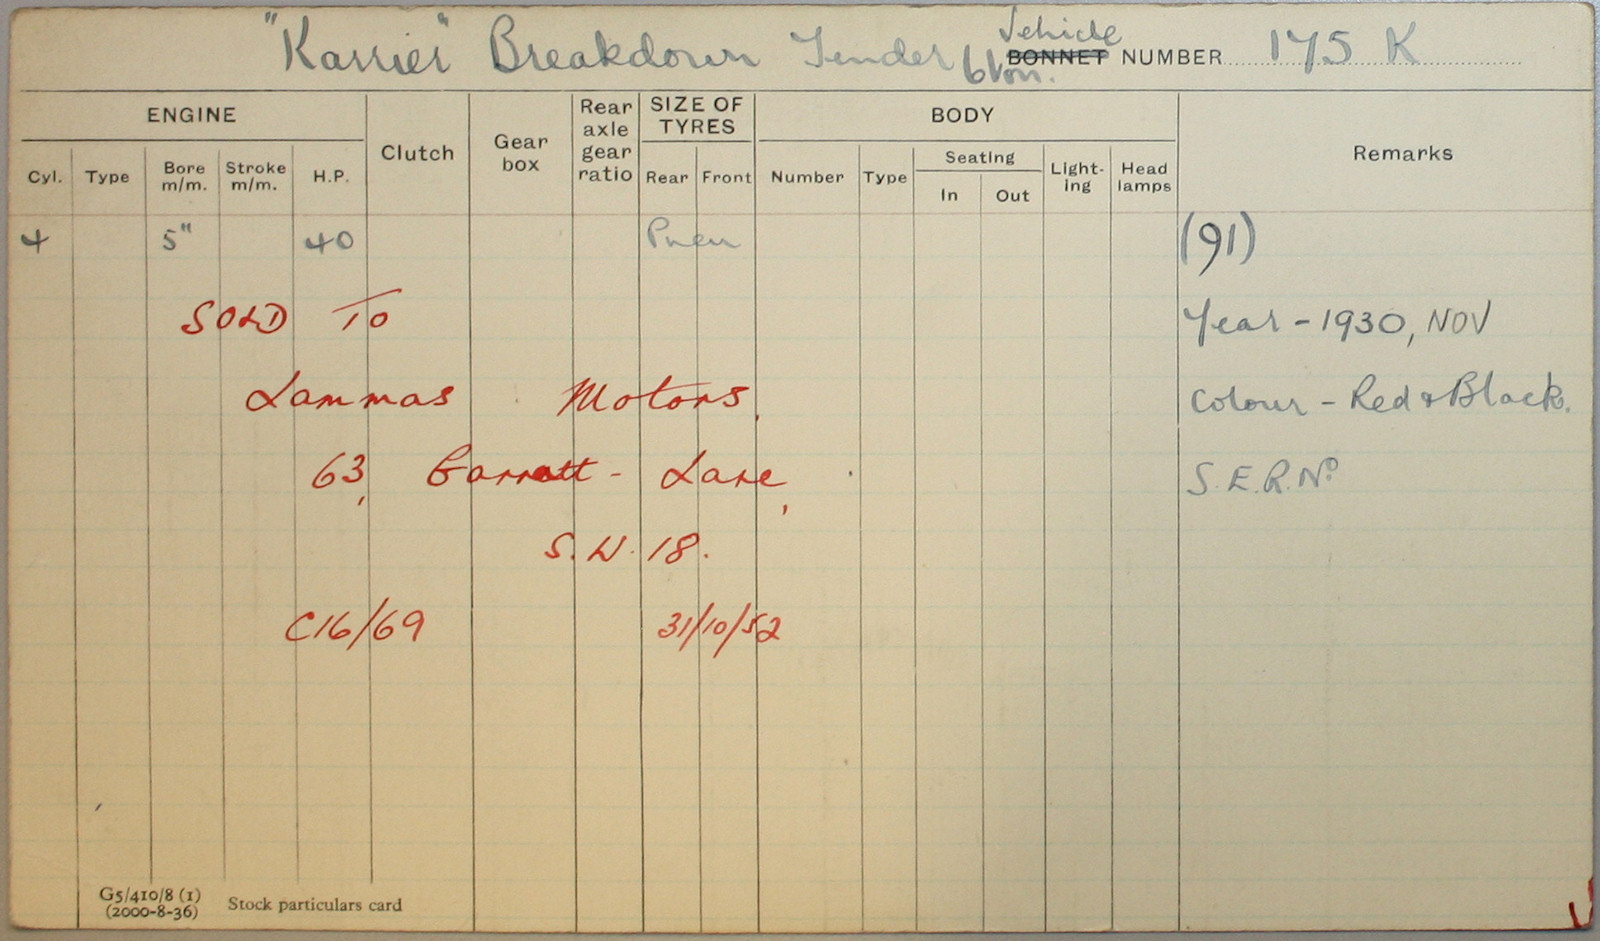 "Karrier" Breakdown Tender 6 Ton.
Vehicle
BONNET NUMBER 175 K
ENGINE
Clutch
Gear box
Rear axle gear ratio
SIZE OF TYRES
BODY
Remarks
Cyl. Type Bore m/m. Stroke m/m. H.P. Rear Front Number Type Seating In Out Light-ing Head lamps
4 5" 40 Pneu (91)
SOLD To Year - 1930, NOV
Lammas Motors, Colour - Red & Black.
63, Garratt - Lane, S.E.R. No
S.W. 18.
C16/69 31/10/52
G5/410/8 (1)
(2000-8-36) Stock particulars card